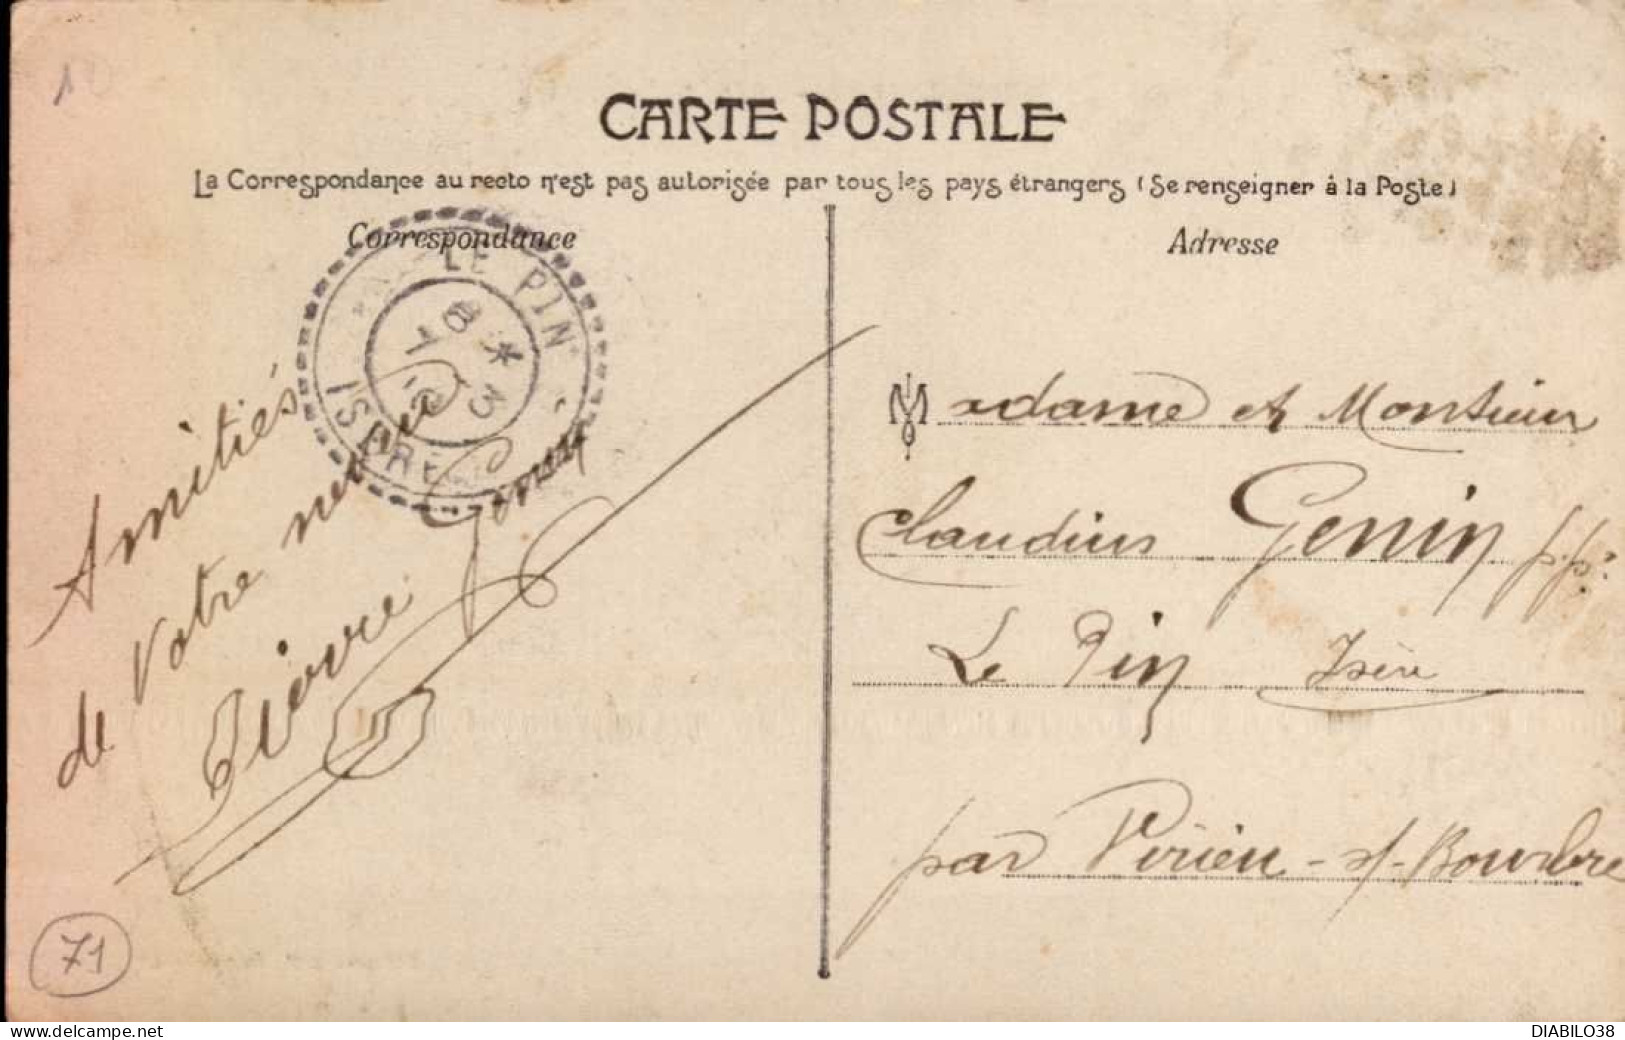 10
CARTE POSTALE
La Correspondance au recto n'est pas autorisée par tous les pays étrangers (Se renseigner à la Poste)
Correspondance
Adresse
LE PIN
ISÈRE
Amitiés
de Votre neveu
Pierre
Madame et Monsieur
Claudius Genin pp:
Le Pin Isère
par Virieu-s/-Bourbre
71
www.delcampe.net
DIABILO38